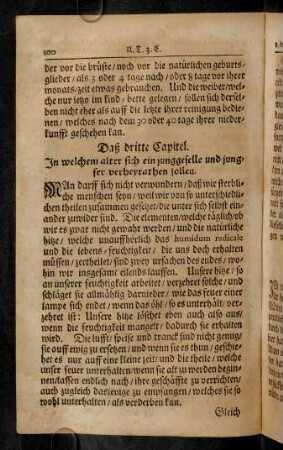 200 II. T. 3. C.
der vor die brüste/ noch vor die natürlichen geburts-
glieder/ als 3 oder 4 tage nach/ oder 8 tage vor ihrer
monats-zeit etwas gebrauchen. Und die weiber/ wel-
che nur jetzo im kind-bette gelegen/ sollen sich dersel-
ben nicht eher als auff die letzte ihrer reinigung bedie-
nen/ welches nach dem 30 oder 40 tage ihrer nieder-
kunfft geschehen kan.
Daß dritte Capitel.
In welchem alter sich ein junggeselle und jung-
fer verheyrathen sollen.
MAn darff sich nicht verwundern/ daß wir sterbli-
che menschen seyn/ weil wir von so unterschiedli-
chen theilen zusammen gesetzt/ die unter sich selbst ein-
ander zuwider sind. Die elementen/ welche täglich/ ob
wir es zwar nicht gewahr werden/ und die natürliche
hitze/ welche unauffhörlich das humidum radicale
und die lebens-feuchtigkeit/ die uns doch erhalten
müssen/ zertheilet/ sind zwey ursachen des endes/ wo-
hin wir insgesamt eilends lauffen. Unsere hitze/ so
an unserer feuchtigkeit arbeitet/ verzehret solche/ und
schläget sie allmählig darnieder/ wie das feuer einer
lampe sich endet/ wenn das öhl/ so es unterhält/ ver-
zehret ist: Unsere hitze löschet eben auch also aus/
wenn die feuchtigkeit mangelt/ dadurch sie erhalten
wird. Die lufft/ speise und tranck sind nicht genug/
sie auff ewig zu ersetzen/ und wenn sie es thun/ geschie-
het es nur auff eine kleine zeit/ und die theile/ welche
unser feuer unterhalten/ wenn sie alt zu werden begin-
nen/ lassen endlich nach/ ihre geschäffte zu verrichten/
auch zugleich darjenige zu empfangen/ welches sie so
wohl unterhalten/ als verderben kan.
Gleich